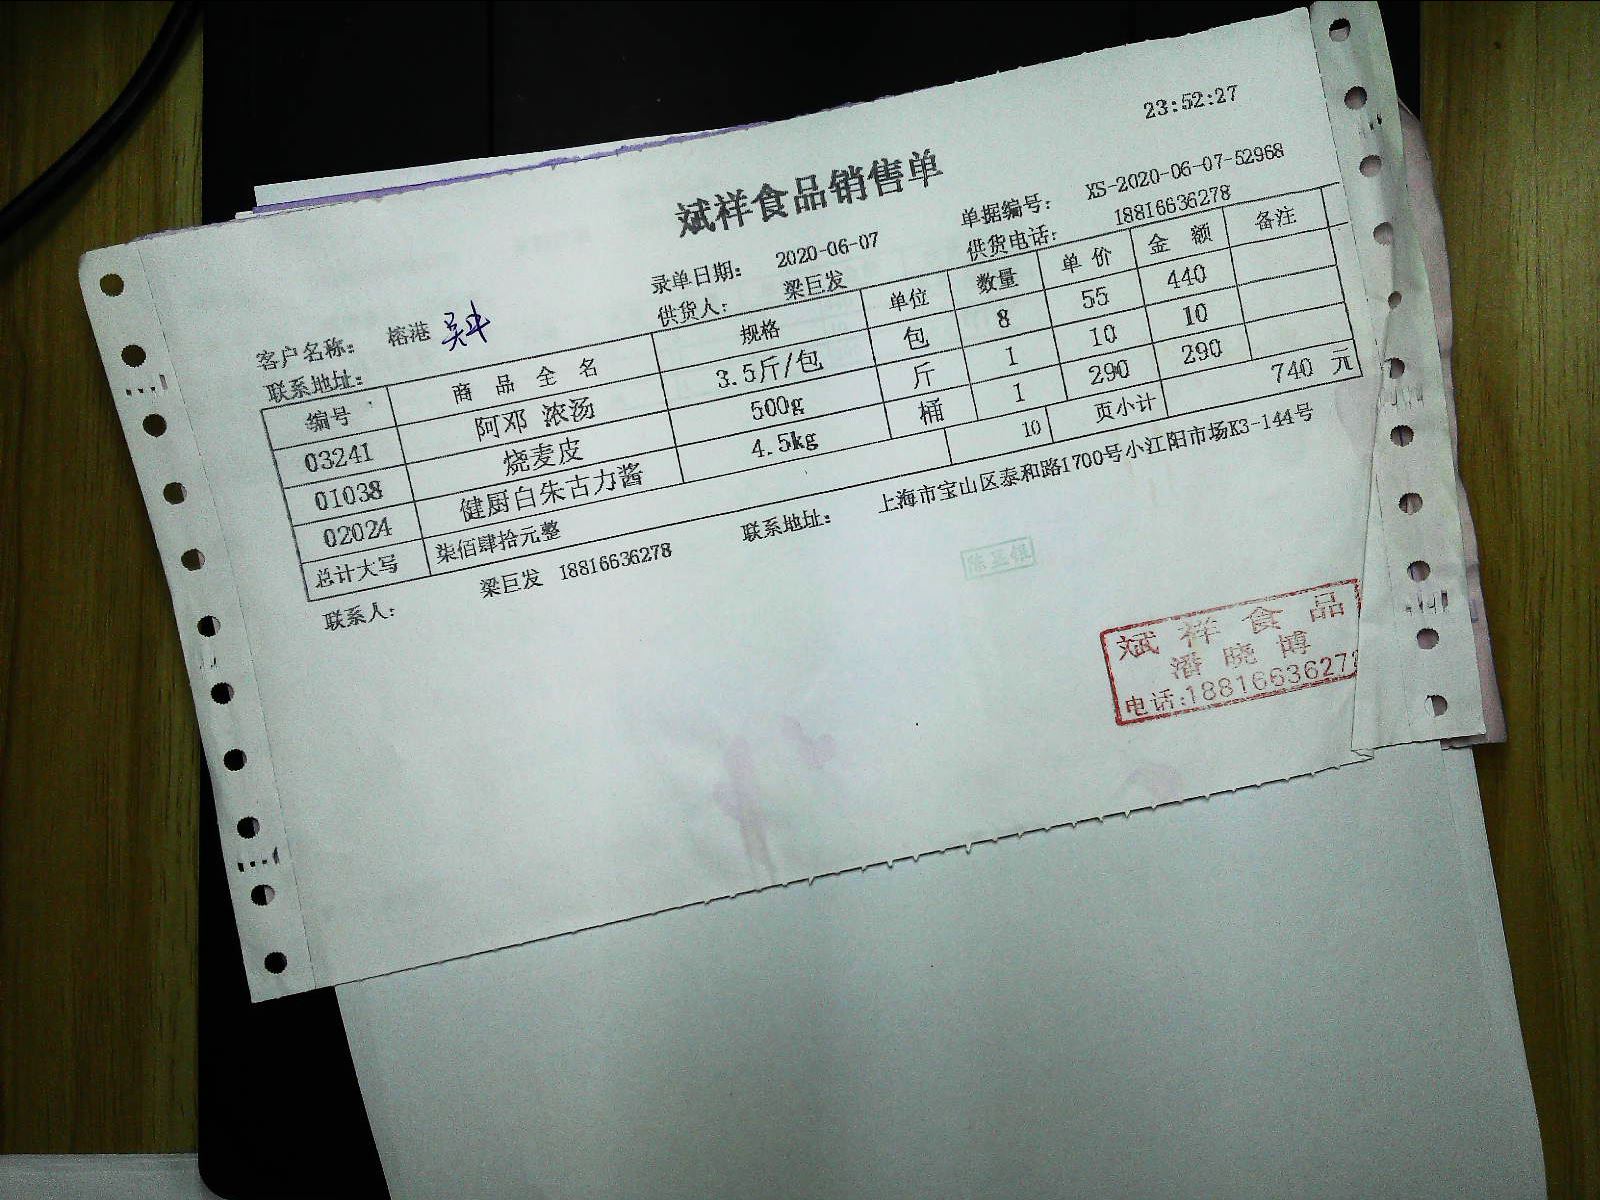 23:52:27
斌祥食品销售单
录单日期： 2020-06-07 单据编号： XS-2020-06-07-52968
客户名称： 榕港 供货人： 梁巨发 供货电话： 18816636278
联系地址：
编号 商品全名 规格 单位 数量 单价 金额 备注
03241 阿邓 浓汤 3.5斤/包 包 8 55 440
01038 烧麦皮 500g 斤 1 10 10
02024 健厨白朱古力酱 4.5kg 桶 1 290 290
总计大写 柒佰肆拾元整 10 页小计 740 元
联系人： 梁巨发 18816636278 联系地址： 上海市宝山区泰和路1700号小江阳市场K3-144号
斌祥食品
潘晓博
电话:1881663627